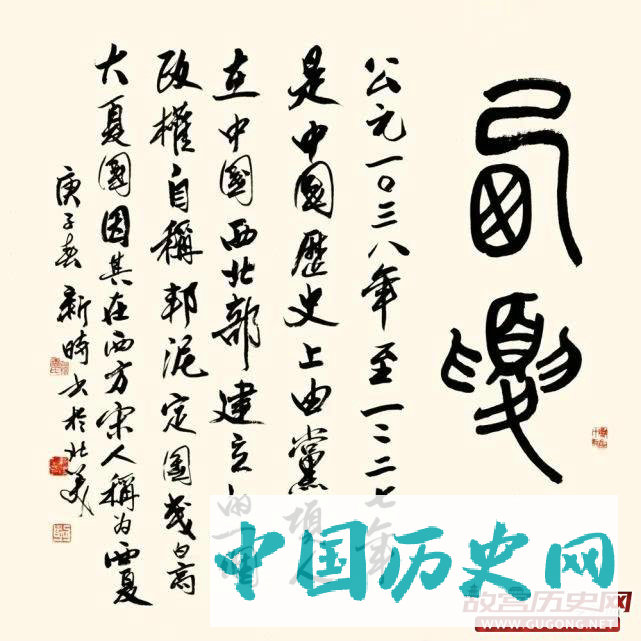 西夏
公元一〇三八年至一二二七年
是中國歷史上由黨項
在中國西北部建立
政權自稱邦泥定國或白高
大夏國因其在西方宋人稱為西夏
庚子春新時書於北美
中国历史网
故宫历史网
WWW.GUGONG.NET